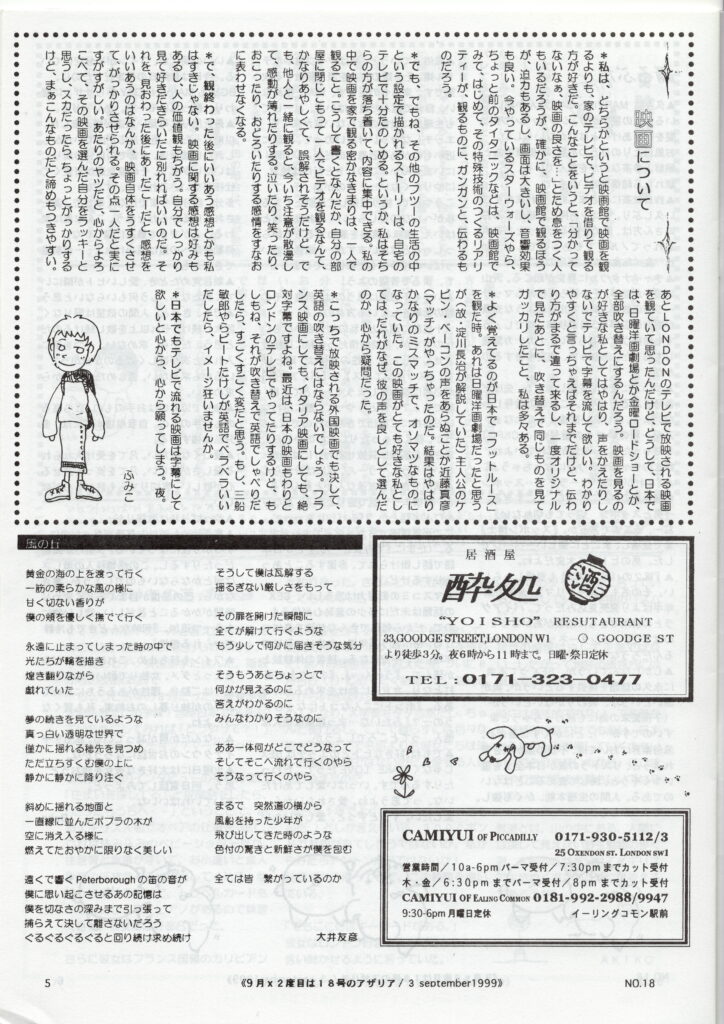 映画について
＊私は、どちらかというと映画館で映画を観
るよりも、家のテレビで、ビデオを借りて観る
方が好きだ。こんなことをいうと、「分かって
ないなぁ、映画の良さを…」とため息をつく人
もいるだろうが、確かに、映画館で観るほう
が、迫力もあるし、画面は大きいし、音響効果
も良い。今やっているスターウォーズやら、
ちょっと前のタイタニックなどは、映画館で
みて、はじめて、その特殊技術のつくるリアリ
ティーが、観るものに、ガンガンと、伝わるも
のだろう。
＊でも、でもね、その他のフツーの生活の中
という設定で描かれるストーリーは、自宅の
テレビで十分たのしめる。というか、私はそち
らの方が落ち着いて、内容に集中できる。私の
中で映画を家で観る密かなきまりは、一人で
観ること。こうして書くとなんだか、自分の部
屋に閉じこもって一人でビデオを観るなんて、
かなりあやしくて、誤解されそうだけど、で
も、他人と一緒に観ると、今いち注意が散漫し
て、感動が薄れたりする。泣いたり、笑ったり、
おこったり、おどろいたりする感情をすなお
に表わせなくなる。
＊で、観終わった後にいいあう感想とかも私
はすきじゃない。映画に関する感想は好みも
あるし、人の価値観もちがう。自分でしっかり
見て好きだきらいだに別れればいいのだ。そ
れを、見おわった後にあーだこーだと、感想を
いいあうのはなんか、映画自体をうすくさせ
て、がっかりさせられる。その点一人だと実に
すがすがしい。あたりのヤツだと、心からよろ
こべて、その映画を選んだ自分をラッキーと
思うし、スカだったら、ちょっとがっかりする
けど、まぁこんなものだと諦めもつきやすい。
あとLONDONのテレビで放映される映画
を観ていて思ったんだけど、どうして、日本で
は、日曜洋画劇場とか金曜ロードショーとか、
全部吹き替えにするんだろう。映画を見るの
が好きな私としてはやはり、声をかえたりし
ないでテレビで字幕を流して欲しい、わかり
やすくと言っちゃえばそれまでだけど、伝わ
り方がまるで違って来るし、一度オリジナル
で見たあとに、吹き替えで同じものを見て
ガッカリしたこと、私は多々ある。
＊よく覚えてるのが日本で「フットルース」
を観た時。あれは日曜洋画劇場だったと思う
が（故・淀川長治が解説していた）主人公のケ
ビン・ベーコンの声をあらぬことか近藤真彦
（マッチ）がやっちゃったのだ。結果はやはり
かなりのミスマッチで、オソマツなものに
なっていた。この映画がとても好きな私とし
ては、だれがなぜ、彼の声を良しとして選んだ
のか、心から疑問だった。
＊こっちで放映される外国映画でも決して、
英語の吹き替えにはならないでしょう。フラ
ンス映画にしても、イタリア映画にしても、絶
対字幕ですよね。最近は、日本の映画もわりと
ロンドンのテレビでやってたりするけど、も
しもね、それが吹き替えで英語でしゃべりだ
したら、すごくすごく変だと思う。もし、三船
敏郎やらビートたけしが英語でベラベラいい
だしたら、イメージ狂いませんか。
＊日本でもテレビで流れる映画は字幕にして
欲しいと心から、心から願ってしまう。夜。
ふみこ
風の丘
黄金の海の上を渡って行く
一筋の柔らかな風の様に
甘く切ない香りが
僕の頬を優しく撫でて行く
永遠に止まってしまった時の中で
光たちが輪を描き
煌き翻りながら
戯れていた
夢の続きを見ているような
真っ白い透明な世界で
僅かに揺れる穂先を見つめ
ただ立ちすくむ僕の上に
静かに静かに降り注ぐ
斜めに揺れる地面と
一直線に並んだポプラの木が
空に消え入る様に
燃えてたおやかに限りなく美しい
遠くで響くPeterboroughの笛の音が
僕に思い起こさせるあの記憶は
僕を切なさの深みまで引っ張って
捕らえて決して離さないだろう
ぐるぐるぐるぐると回り続け求め続け
そうして僕は瓦解する
揺るぎない厳しさをもって
その扉を開けた瞬間に
全てが解けて行くような
もう少しで何かに届きそうな気分
そうもうあとちょっとで
何かが見えるのに
答えがわかるのに
みんなわかりそうなのに
ああ一体何がどこでどうなって
そしてそこへ流れて行くのやら
そうなって行くのやら
まるで　突然道の横から
風船を持った少年が
飛び出してきた時のような
色付の驚きと新鮮さが僕を包む
全ては皆　繋がっているのか
大井友彦
居酒屋
酔処 酒
“YOISHO” RESUTAURANT
33,GOODGE STREET,LONDON W1 ○ GOODGE ST
より徒歩3分。夜6時から11時まで。日曜・祭日定休
TEL:0171―323―0477
CAMIYUI OF PICCADILLY 0171-930-5112/3
25 OXENDON ST. LONDON SW1
営業時間／10a-6pmパーマ受付／7:30pmまでカット受付
木・金／6:30pmまでパーマ受付／8pmまでカット受付
CAMIYUI OF EALING COMMON 0181-992-2988/9947
9:30-6pm月曜日定休 イーリングコモン駅前
5
《9月x2度目は18号のアザリア/ 3 september1999》
NO.18